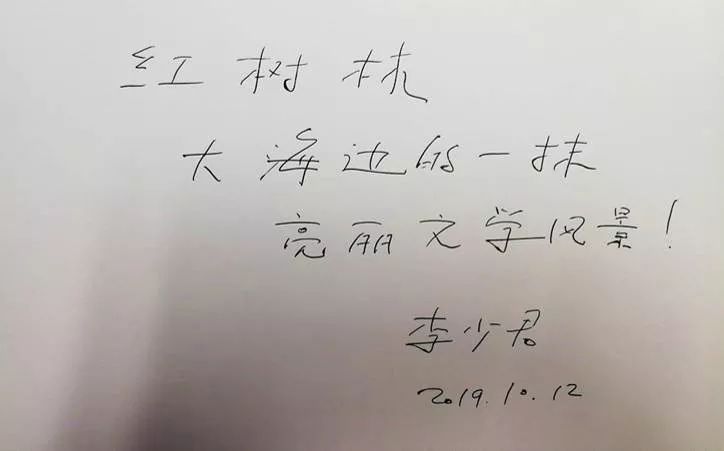 红树林
大海边的一抹
亮丽文学风景！
李少君
2019.10.12